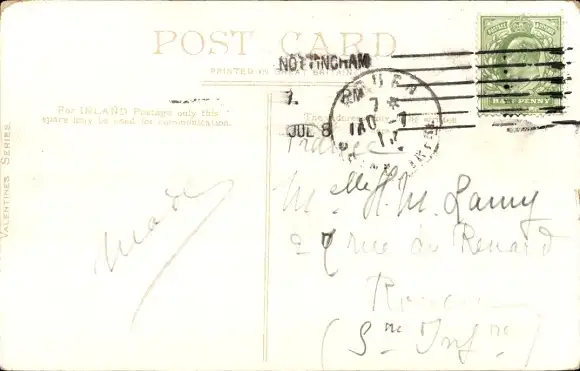 POST CARD
PRINTED IN GREAT BRITAIN
For INLAND Postage only this
space may be used for communication.
The address
VALENTINE'S SERIES.
NOTTINGHAM
JUL 8
ROUEN
HALF PENNY
France
Mlle H. M. Lamy
27 rue du Renard
Rouen
(Sne Infre)